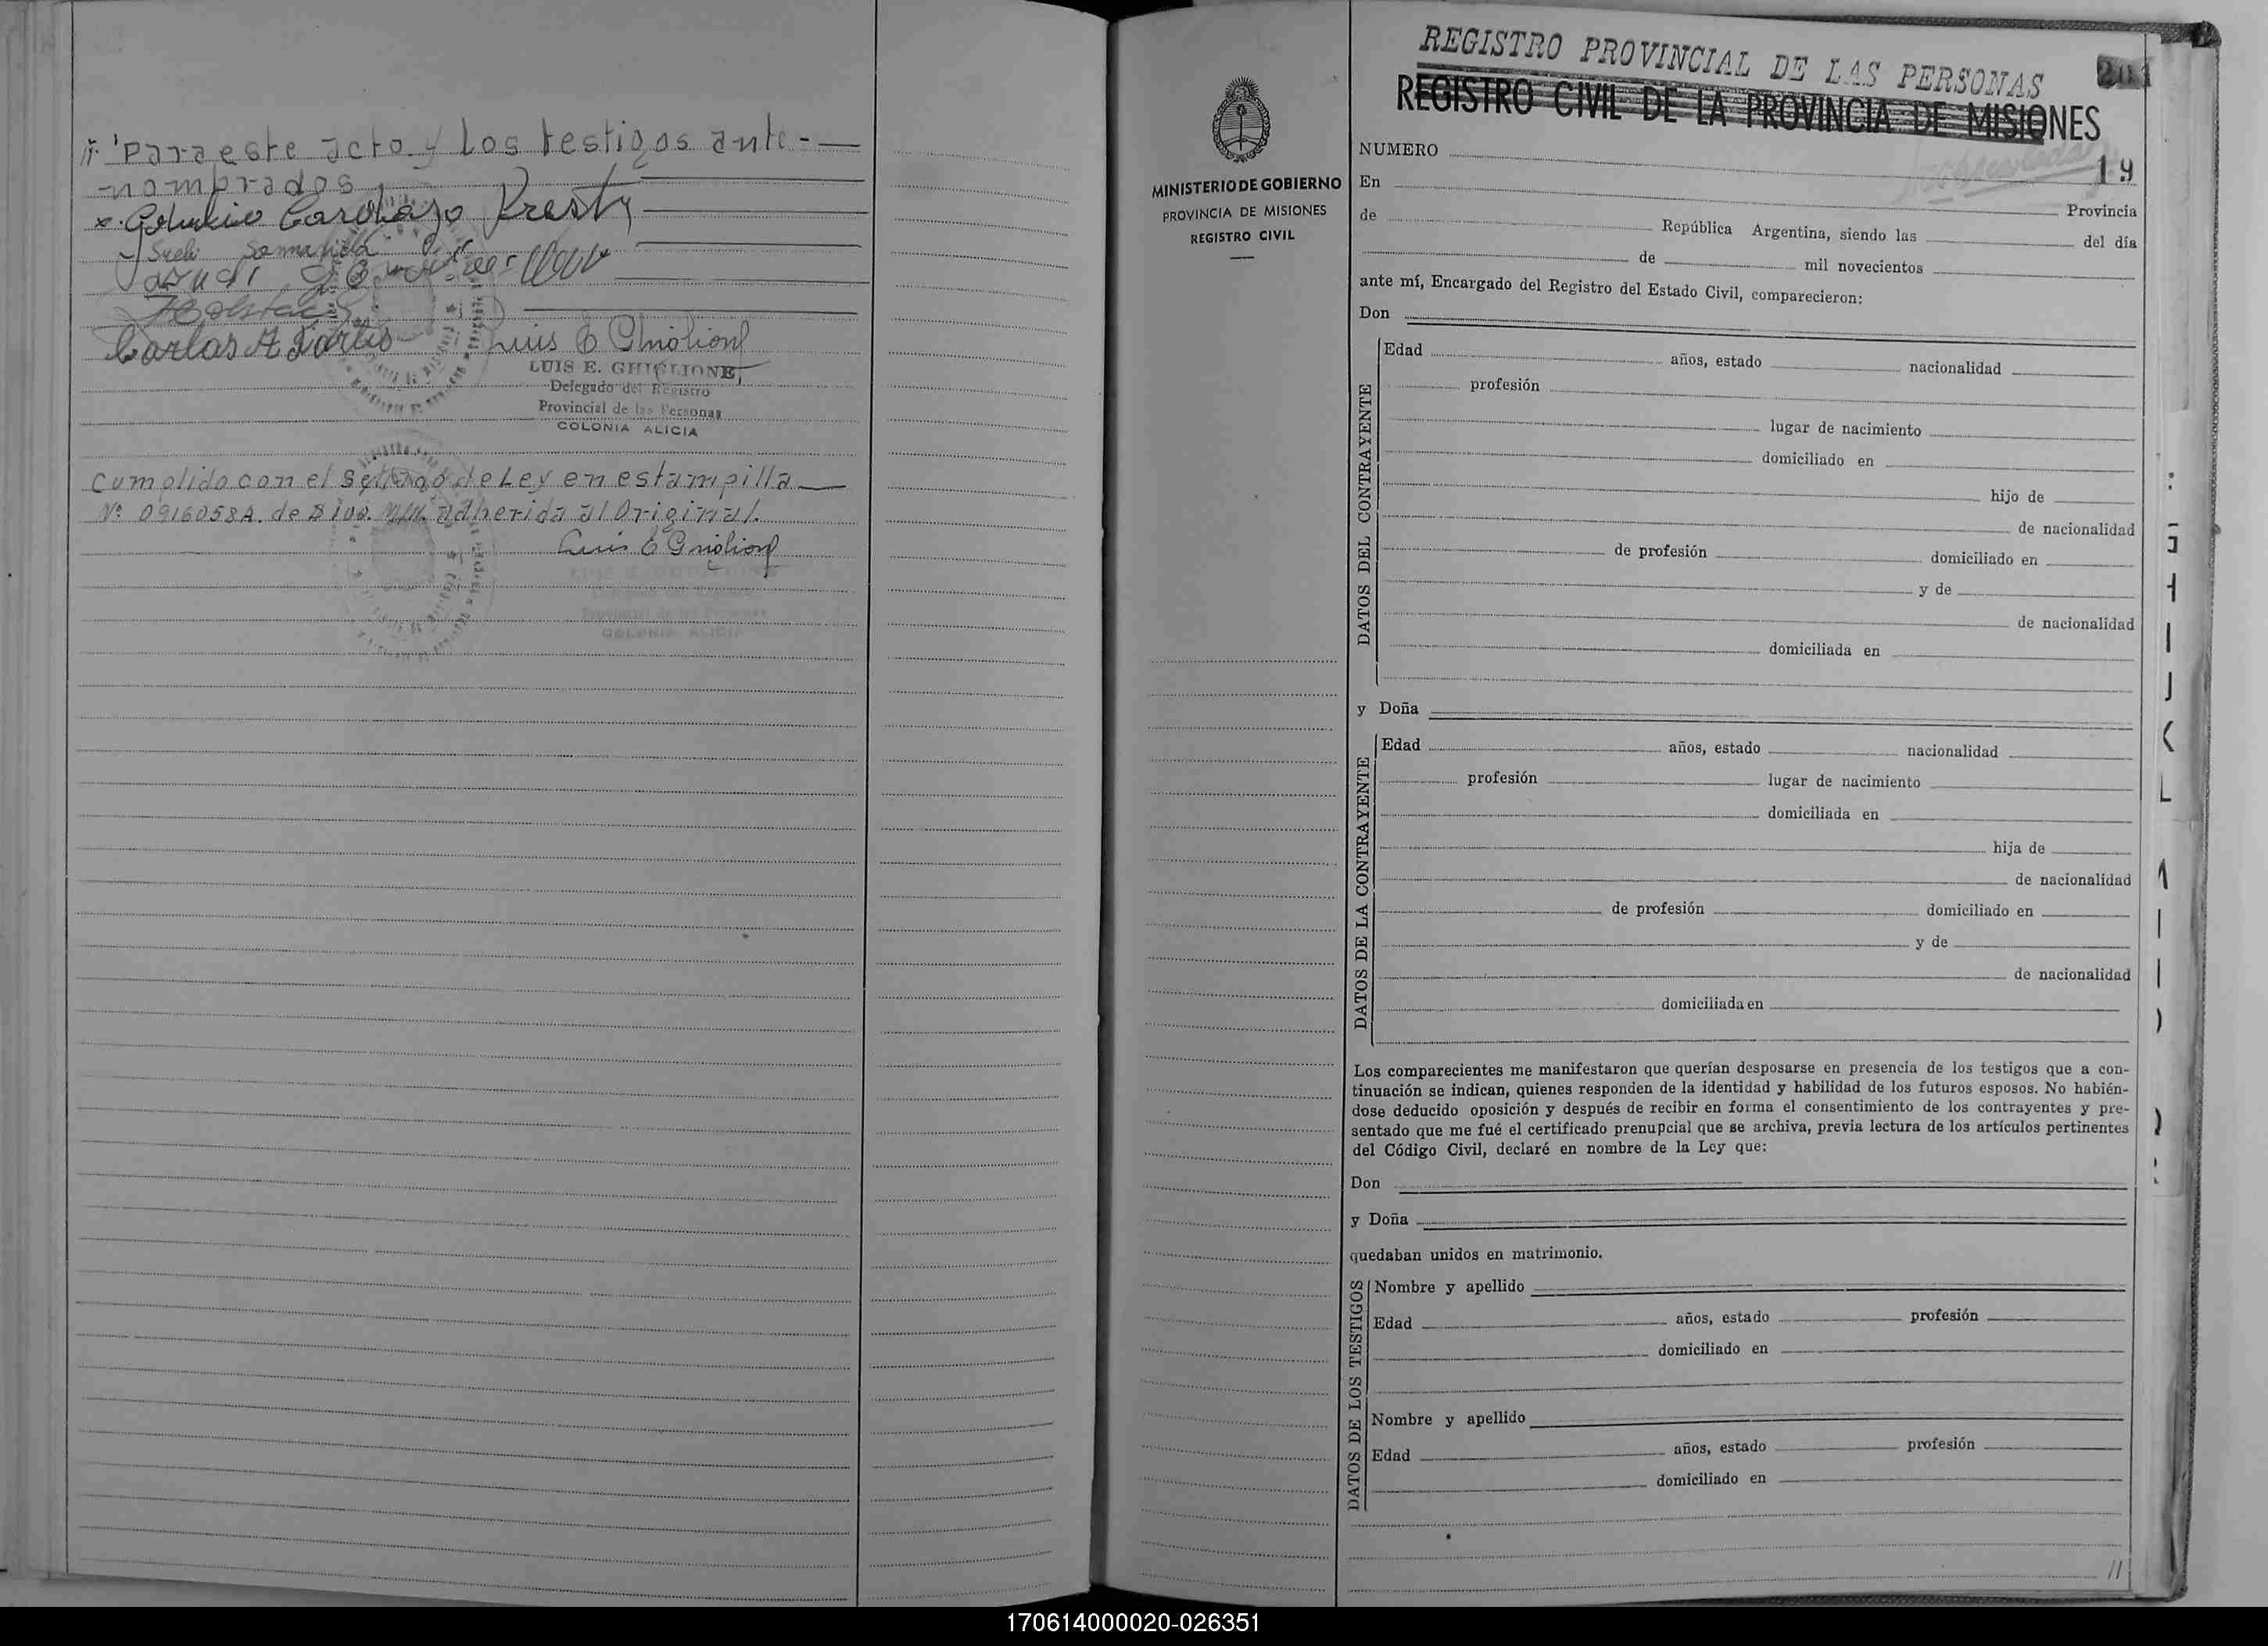 Para este acto y los testigos ante-
-nombrados
Carlos A
Luis E Ghiglione
LUIS E. GHIGLIONE
Delegado del Registro
Provincial de las Personas
COLONIA ALICIA
Cumplido con el Sellado de Ley en estampilla
Nº 0916058A. de $ 100. M/N. adherida al Original.
Luis E Ghiglione
Provincial de las Personas
COLONIA ALICIA
MINISTERIO DE GOBIERNO
PROVINCIA DE MISIONES
REGISTRO CIVIL
REGISTRO PROVINCIAL DE LAS PERSONAS
REGISTRO CIVIL DE LA PROVINCIA DE MISIONES
NUMERO
19
En
Provincia
de República Argentina, siendo las del día
de mil novecientos
ante mí, Encargado del Registro del Estado Civil, comparecieron:
Don
DATOS DEL CONTRAYENTE
Edad años, estado nacionalidad
profesión
lugar de nacimiento
domiciliado en
hijo de
de nacionalidad
de profesión domiciliado en
y de
de nacionalidad
domiciliada en
y Doña
DATOS DE LA CONTRAYENTE
Edad años, estado nacionalidad
profesión lugar de nacimiento
domiciliada en
hija de
de nacionalidad
de profesión domiciliado en
y de
de nacionalidad
domiciliada en
Los comparecientes me manifestaron que querían desposarse en presencia de los testigos que a con-
tinuación se indican, quienes responden de la identidad y habilidad de los futuros esposos. No habién-
dose deducido oposición y después de recibir en forma el consentimiento de los contrayentes y pre-
sentado que me fué el certificado prenupcial que se archiva, previa lectura de los artículos pertinentes
del Código Civil, declaré en nombre de la Ley que:
Don
y Doña
quedaban unidos en matrimonio.
DATOS DE LOS TESTIGOS
Nombre y apellido
Edad años, estado profesión
domiciliado en
Nombre y apellido
Edad años, estado profesión
domiciliado en
170614000020-026351